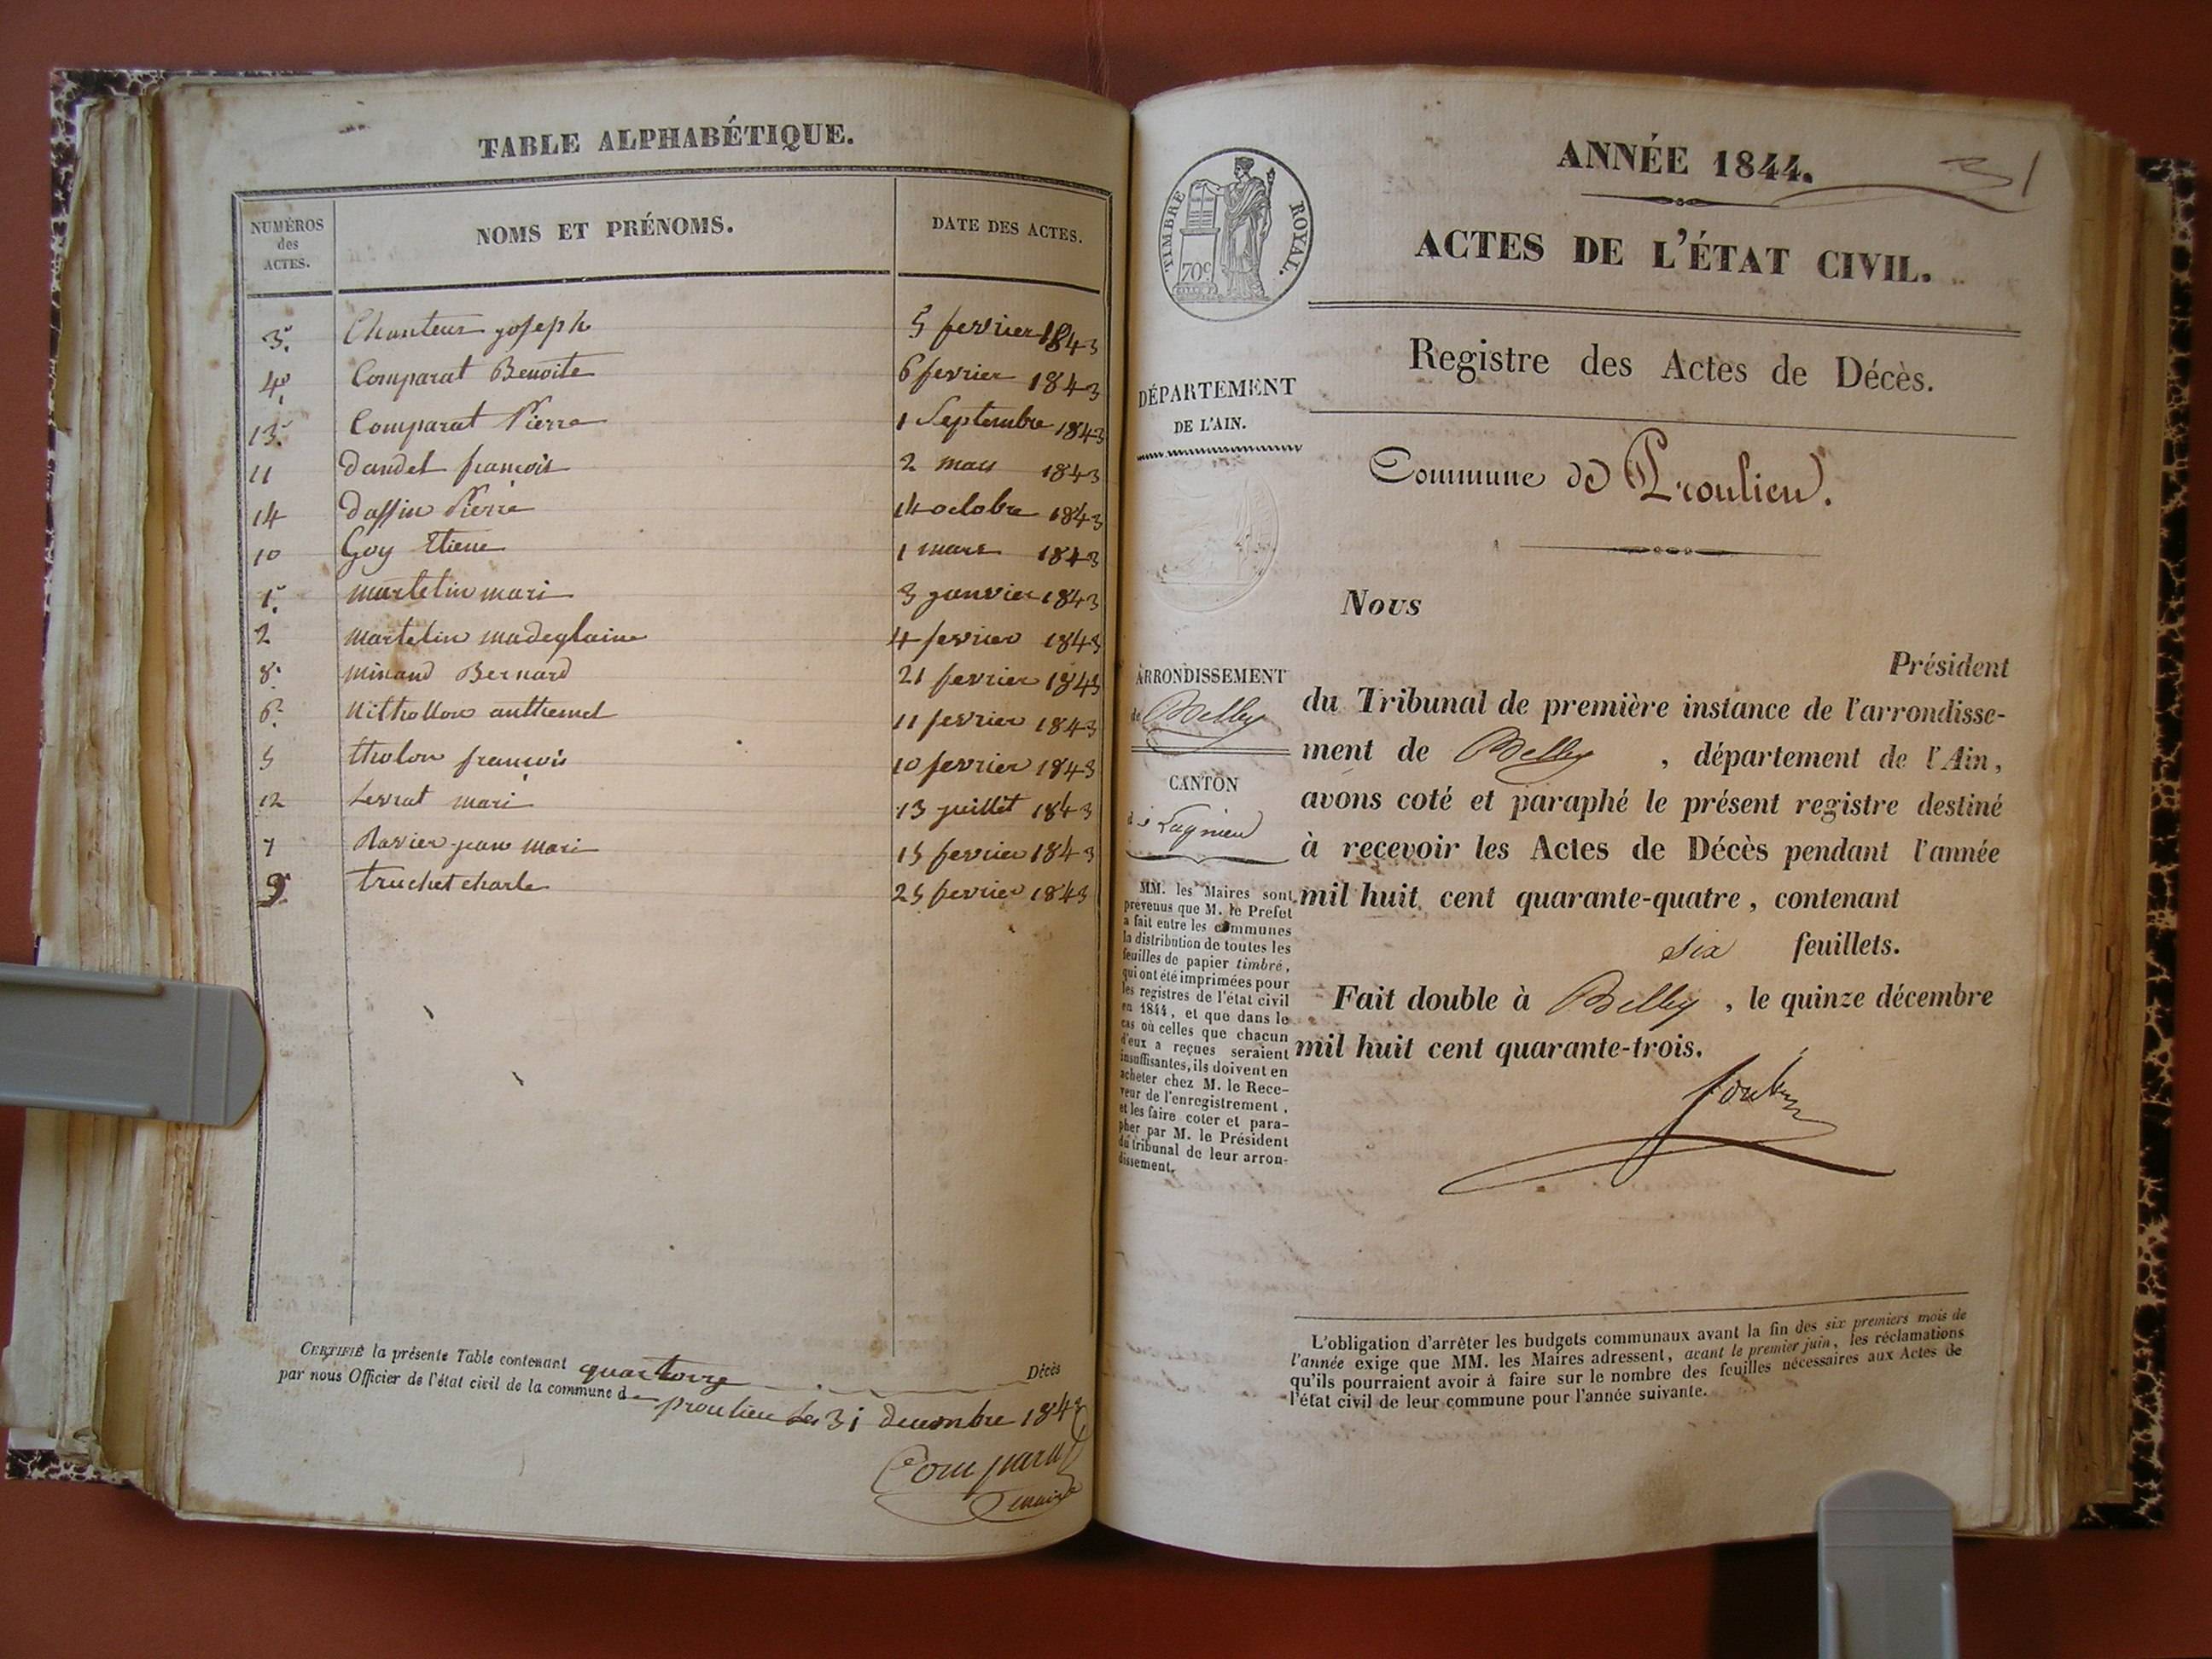 TABLE ALPHABÉTIQUE.
NUMÉROS des ACTES.
NOMS ET PRÉNOMS.
DATE DES ACTES.
3. Chanteur joseph 5 fevrier 1843
4. Comparat Benoite 6 fevrier 1843
13. Comparat Pierre 1 Septembre 1843
11 dandel francois 2 mars 1843
14 dassin Pierre 14 octobre 1843
10 Goy Etiene 1 mars 1843
1. martelin mari 3 janvier 1843
2 martelin madeglaine 4 fevrier 1843
8. minand Bernard 21 fevrier 1843
6. anthemel 11 fevrier 1843
5 tholon francois 10 fevrier 1843
12 Levrat mari 13 juillet 1843
7 Ravier jean mari 15 fevrier 1843
9. truchet charle 25 fevrier 1843
CERTIFIÉ la présente Table contenant quartorze Décès
par nous Officier de l'état civil de la commune de proulieu Les 31 decembre 1843
Comparat
maire
31
ANNÉE 1844.
ACTES DE L'ÉTAT CIVIL.
TIMBRE ROYAL.
70c
Registre des Actes de Décès.
DÉPARTEMENT
DE L'AIN.
Commune de Proulieu.
ARRONDISSEMENT
de Belley
CANTON
de Lagnieu
MM. les Maires sont
prévenus que M. le Préfet
a fait entre les communes
la distribution de toutes les
feuilles de papier timbré,
qui ont été imprimées pour
les registres de l'état civil
en 1844, et que dans le
cas où celles que chacun
d'eux a reçues seraient
insuffisantes, ils doivent en
acheter chez M. le Rece-
veur de l'enregistrement,
et les faire coter et para-
pher par M. le Président
du tribunal de leur arron-
dissement.
Nous
Président
du Tribunal de première instance de l'arrondisse-
ment de Belley, département de l'Ain,
avons coté et paraphé le présent registre destiné
à recevoir les Actes de Décès pendant l'année
mil huit cent quarante-quatre, contenant
six feuillets.
Fait double à Belley, le quinze décembre
mil huit cent quarante-trois.
L'obligation d'arrêter les budgets communaux avant la fin des six premiers mois de
l'année exige que MM. les Maires adressent, avant le premier juin, les réclamations
qu'ils pourraient avoir à faire sur le nombre des feuilles nécessaires aux Actes de
l'état civil de leur commune pour l'année suivante.